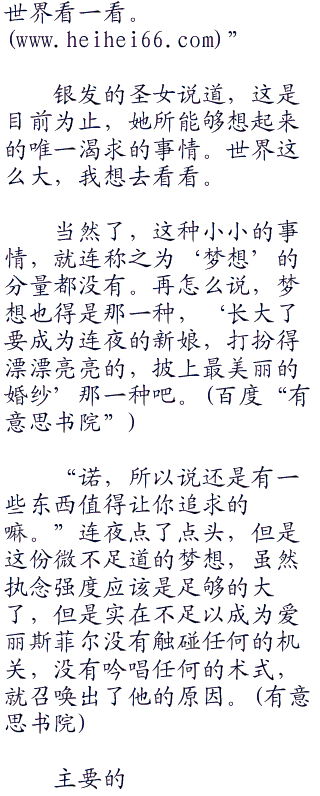 世界看一看。
(www.heihei66.com)”
银发的圣女说道，这是
目前为止，她所能够想起来
的唯一渴求的事情。世界这
么大，我想去看看。
当然了，这种小小的事
情，就连称之为‘梦想’的
分量都没有。再怎么说，梦
想也得是那一种，‘长大了
要成为连夜的新娘，打扮得
漂漂亮亮的，披上最美丽的
婚纱’那一种吧。(百度“有
意思书院”)
“诺，所以说还是有一
些东西值得让你追求的
嘛。”连夜点了点头，但是
这份微不足道的梦想，虽然
执念强度应该是足够的大
了，但是实在不足以成为爱
丽斯菲尔没有触碰任何的机
关，没有吟唱任何的术式，
就召唤出了他的原因。(有意
思书院)
主要的